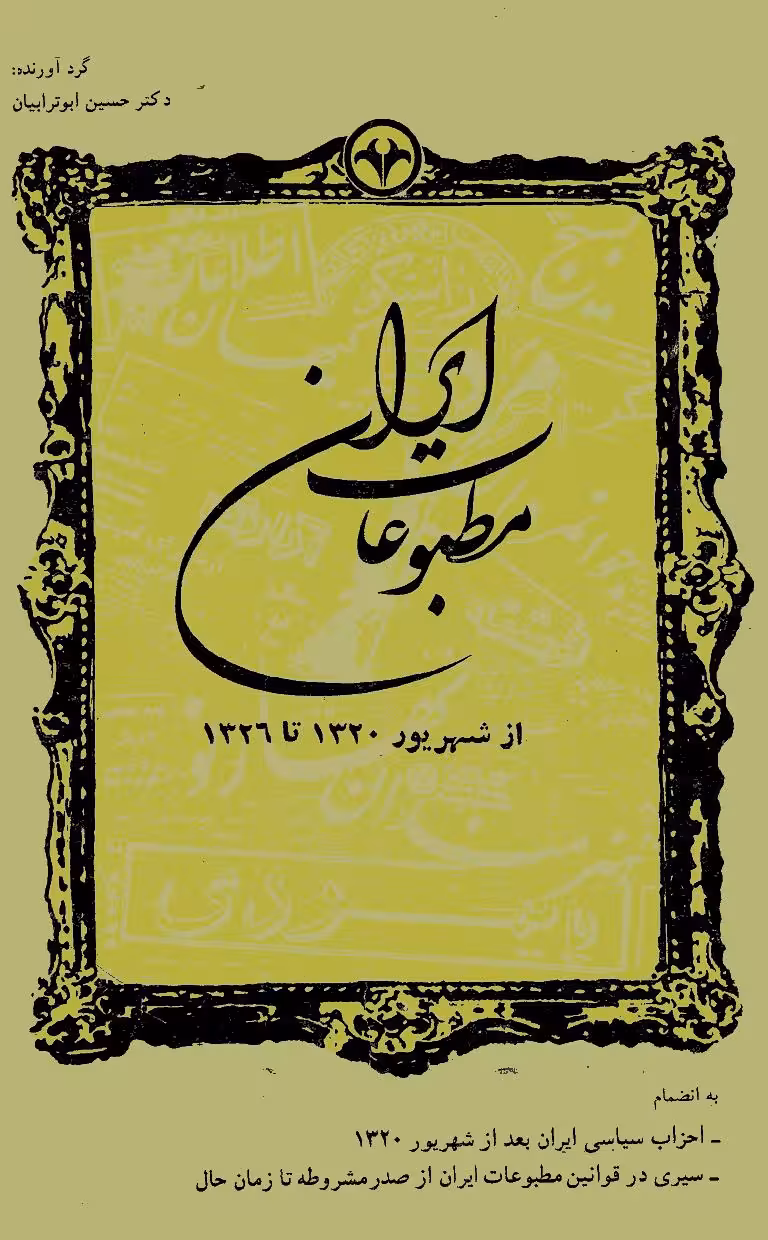 گرد آورنده:
دکتر حسین ابوترابیان
اطلاعات
کیهان
مطبوعات
ایران
از شهریور ۱۳۲۰ تا ۱۳۲۶
به انضمام
ـ احزاب سیاسی ایران بعد از شهریور ۱۳۲۰
ـ سیری در قوانین مطبوعات ایران از صدر مشروطه تا زمان حال